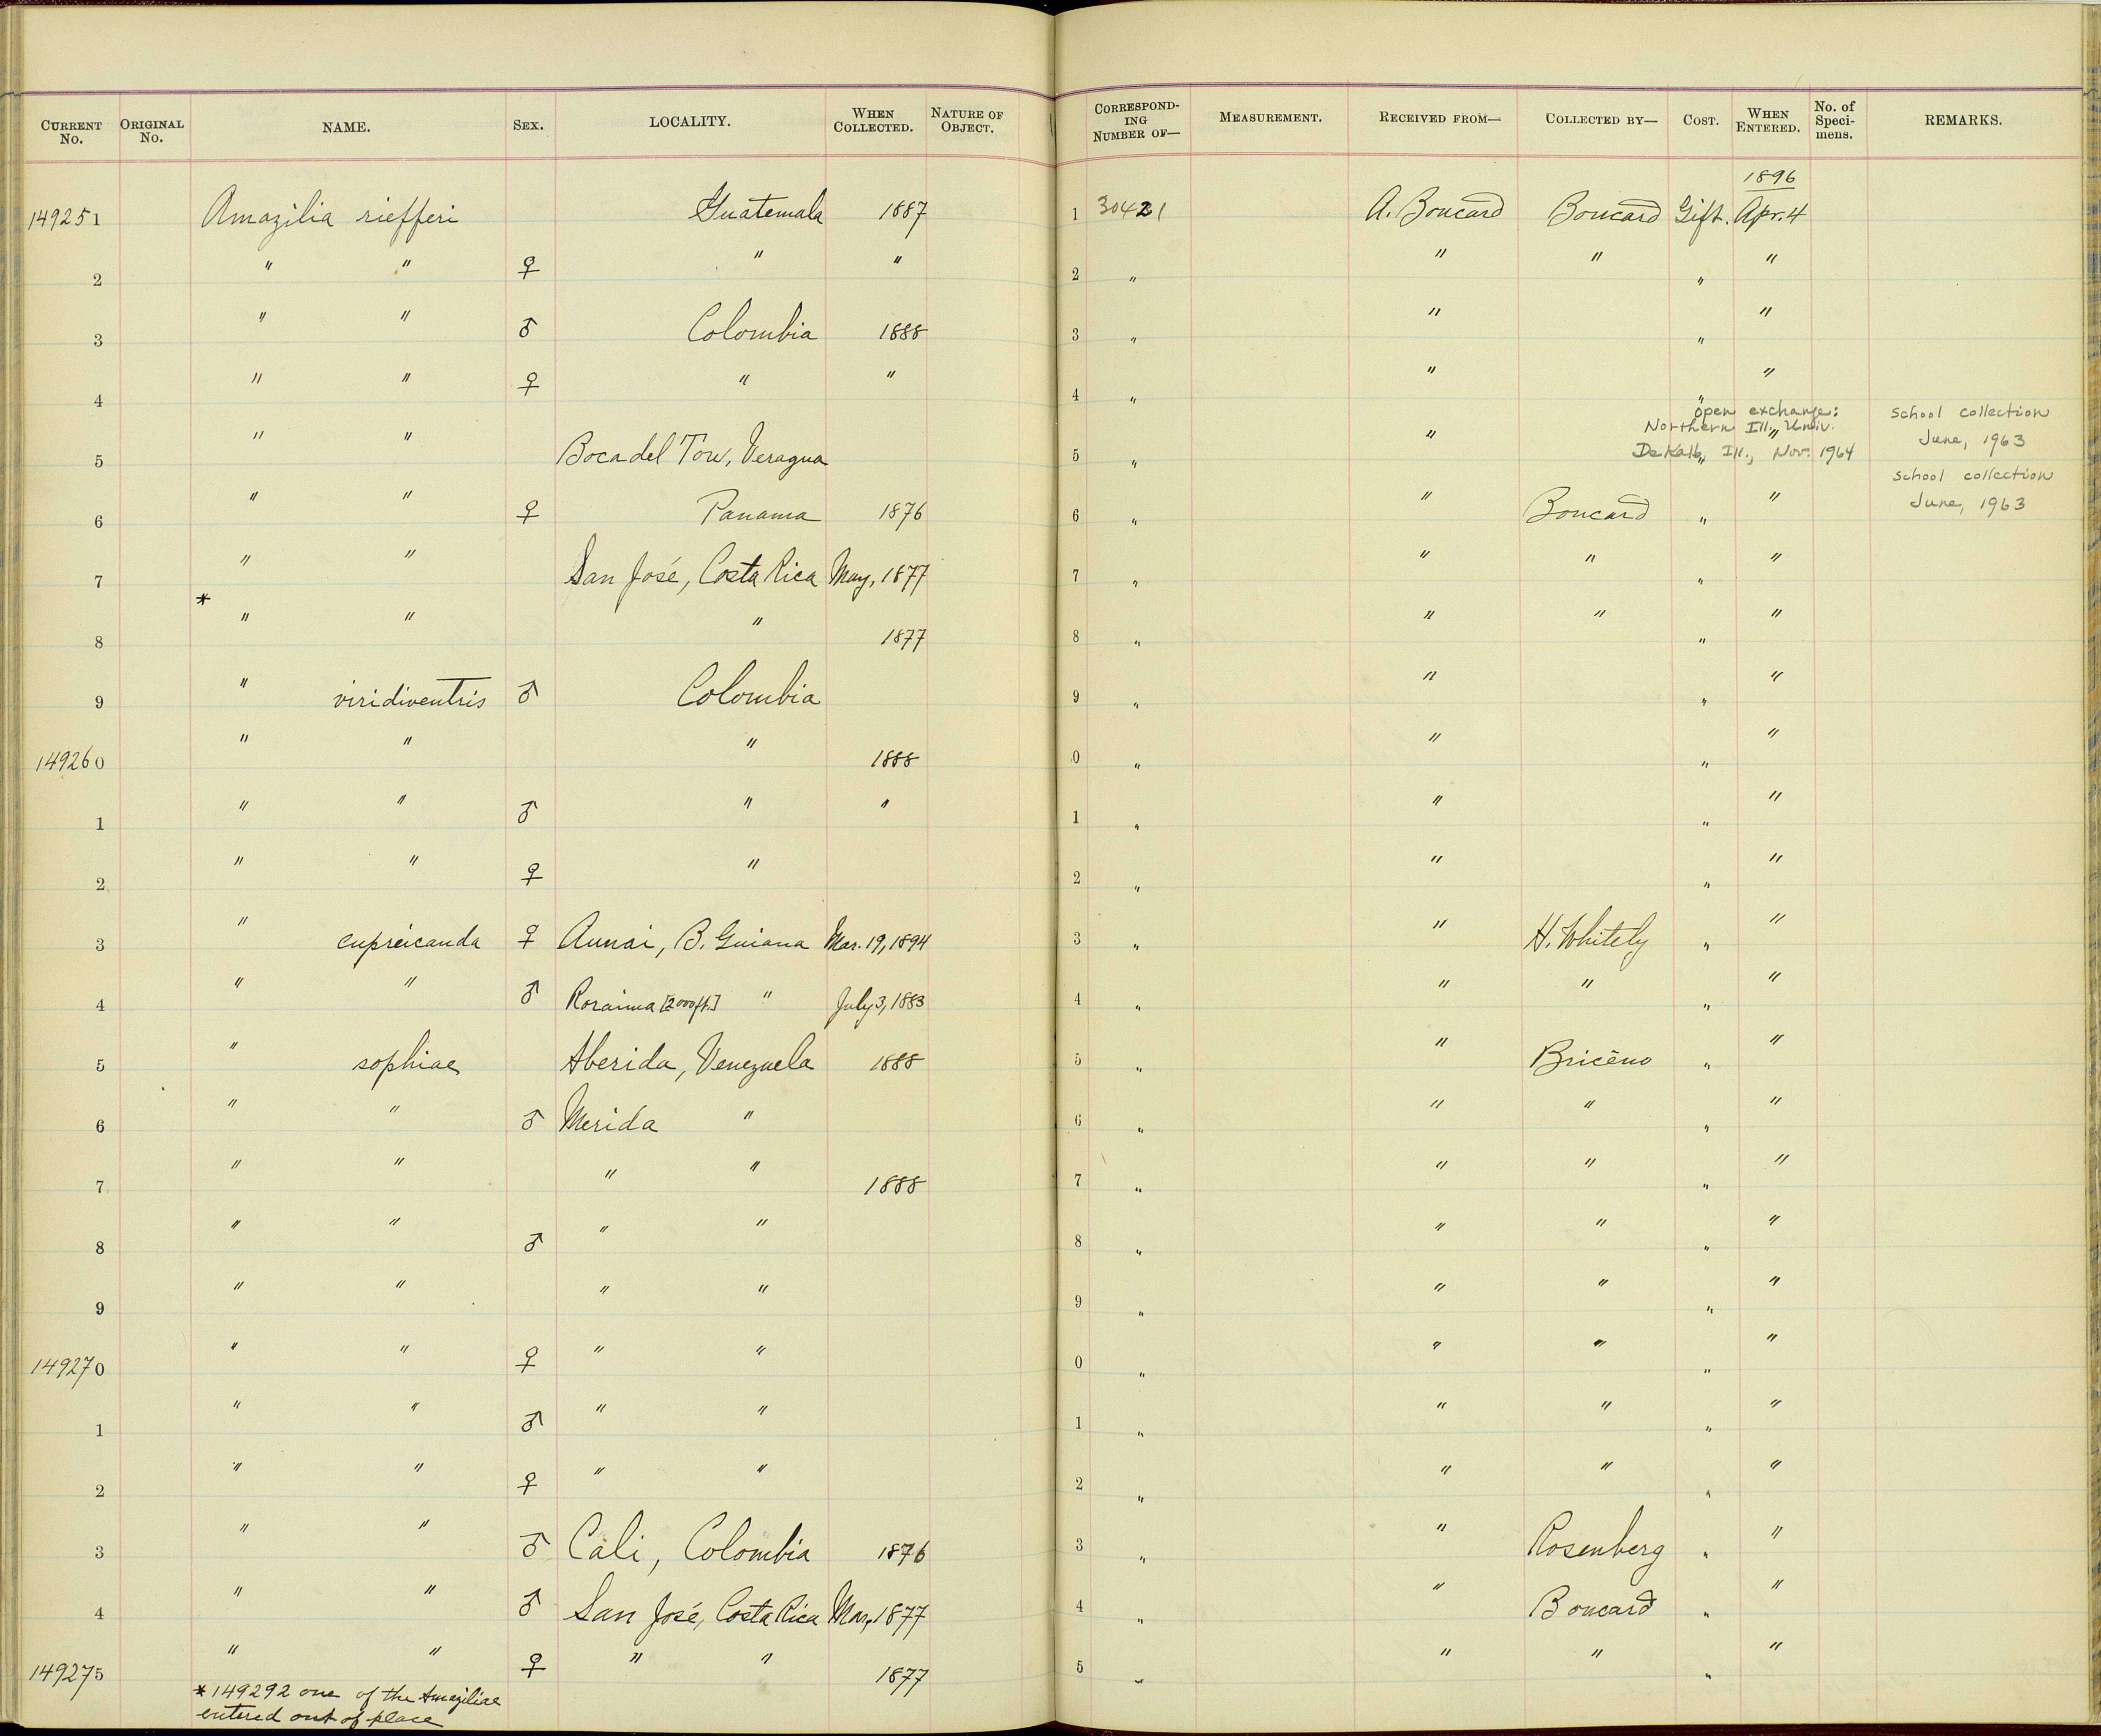 CURRENT No. ORIGINAL No. NAME. SEX. LOCALITY. WHEN COLLECTED. NATURE OF OBJECT. CORRESPONDING NUMBER OF— MEASUREMENT. RECEIVED FROM— COLLECTED BY— COST. WHEN ENTERED. No. of Specimens. REMARKS.
1896
149251 Amazilia riefferi Guatemala 1887 1 30421 A. Boucard Boucard Gift. Apr. 4
2 " " ♀ " " 2 " " " " "
3 " " ♂ Colombia 1888 3 " " " "
4 " " ♀ " " 4 " " " "
open exchange: Northern Ill. Univ. DeKalb, Ill., Nov. 1964
school collection June, 1963
5 " " Boca del Toro, Veragua 5 " " " "
school collection June, 1963
6 " " ♀ Panama 1876 6 " " Boucard " "
7 " " San José, Costa Rica May, 1877 7 " " " " "
8 * " " " 1877 8 " " " " "
9 " viridiventris ♂ Colombia 9 " " " "
149260 " " " 1888 0 " " " "
1 " " ♂ " " 1 " " " "
2 " " ♀ " 2 " " " "
3 " cupreicauda ♀ Aunai, B. Guiana Mar. 19, 1894 3 " " H. Whitely " "
4 " " ♂ Roraima [2000ft.] " July 3, 1883 4 " " " " "
5 " sophiae Aberida, Venezuela 1888 5 " " Briceño " "
6 " " ♂ Merida " 6 " " " " "
7 " " " " 1888 7 " " " " "
8 " " ♂ " " 8 " " " " "
9 " " " " 9 " " " " "
149270 " " ♀ " " 0 " " " " "
1 " " ♂ " " 1 " " " " "
2 " " ♀ " " 2 " " " " "
3 " " ♂ Cali, Colombia 1876 3 " " Rosenberg " "
4 " " ♂ San José, Costa Rica Mar, 1877 4 " " Boucard " "
149275 " " ♀ " " 1877 5 " " " " "
* 149292 one of the Amaziliae
entered out of place